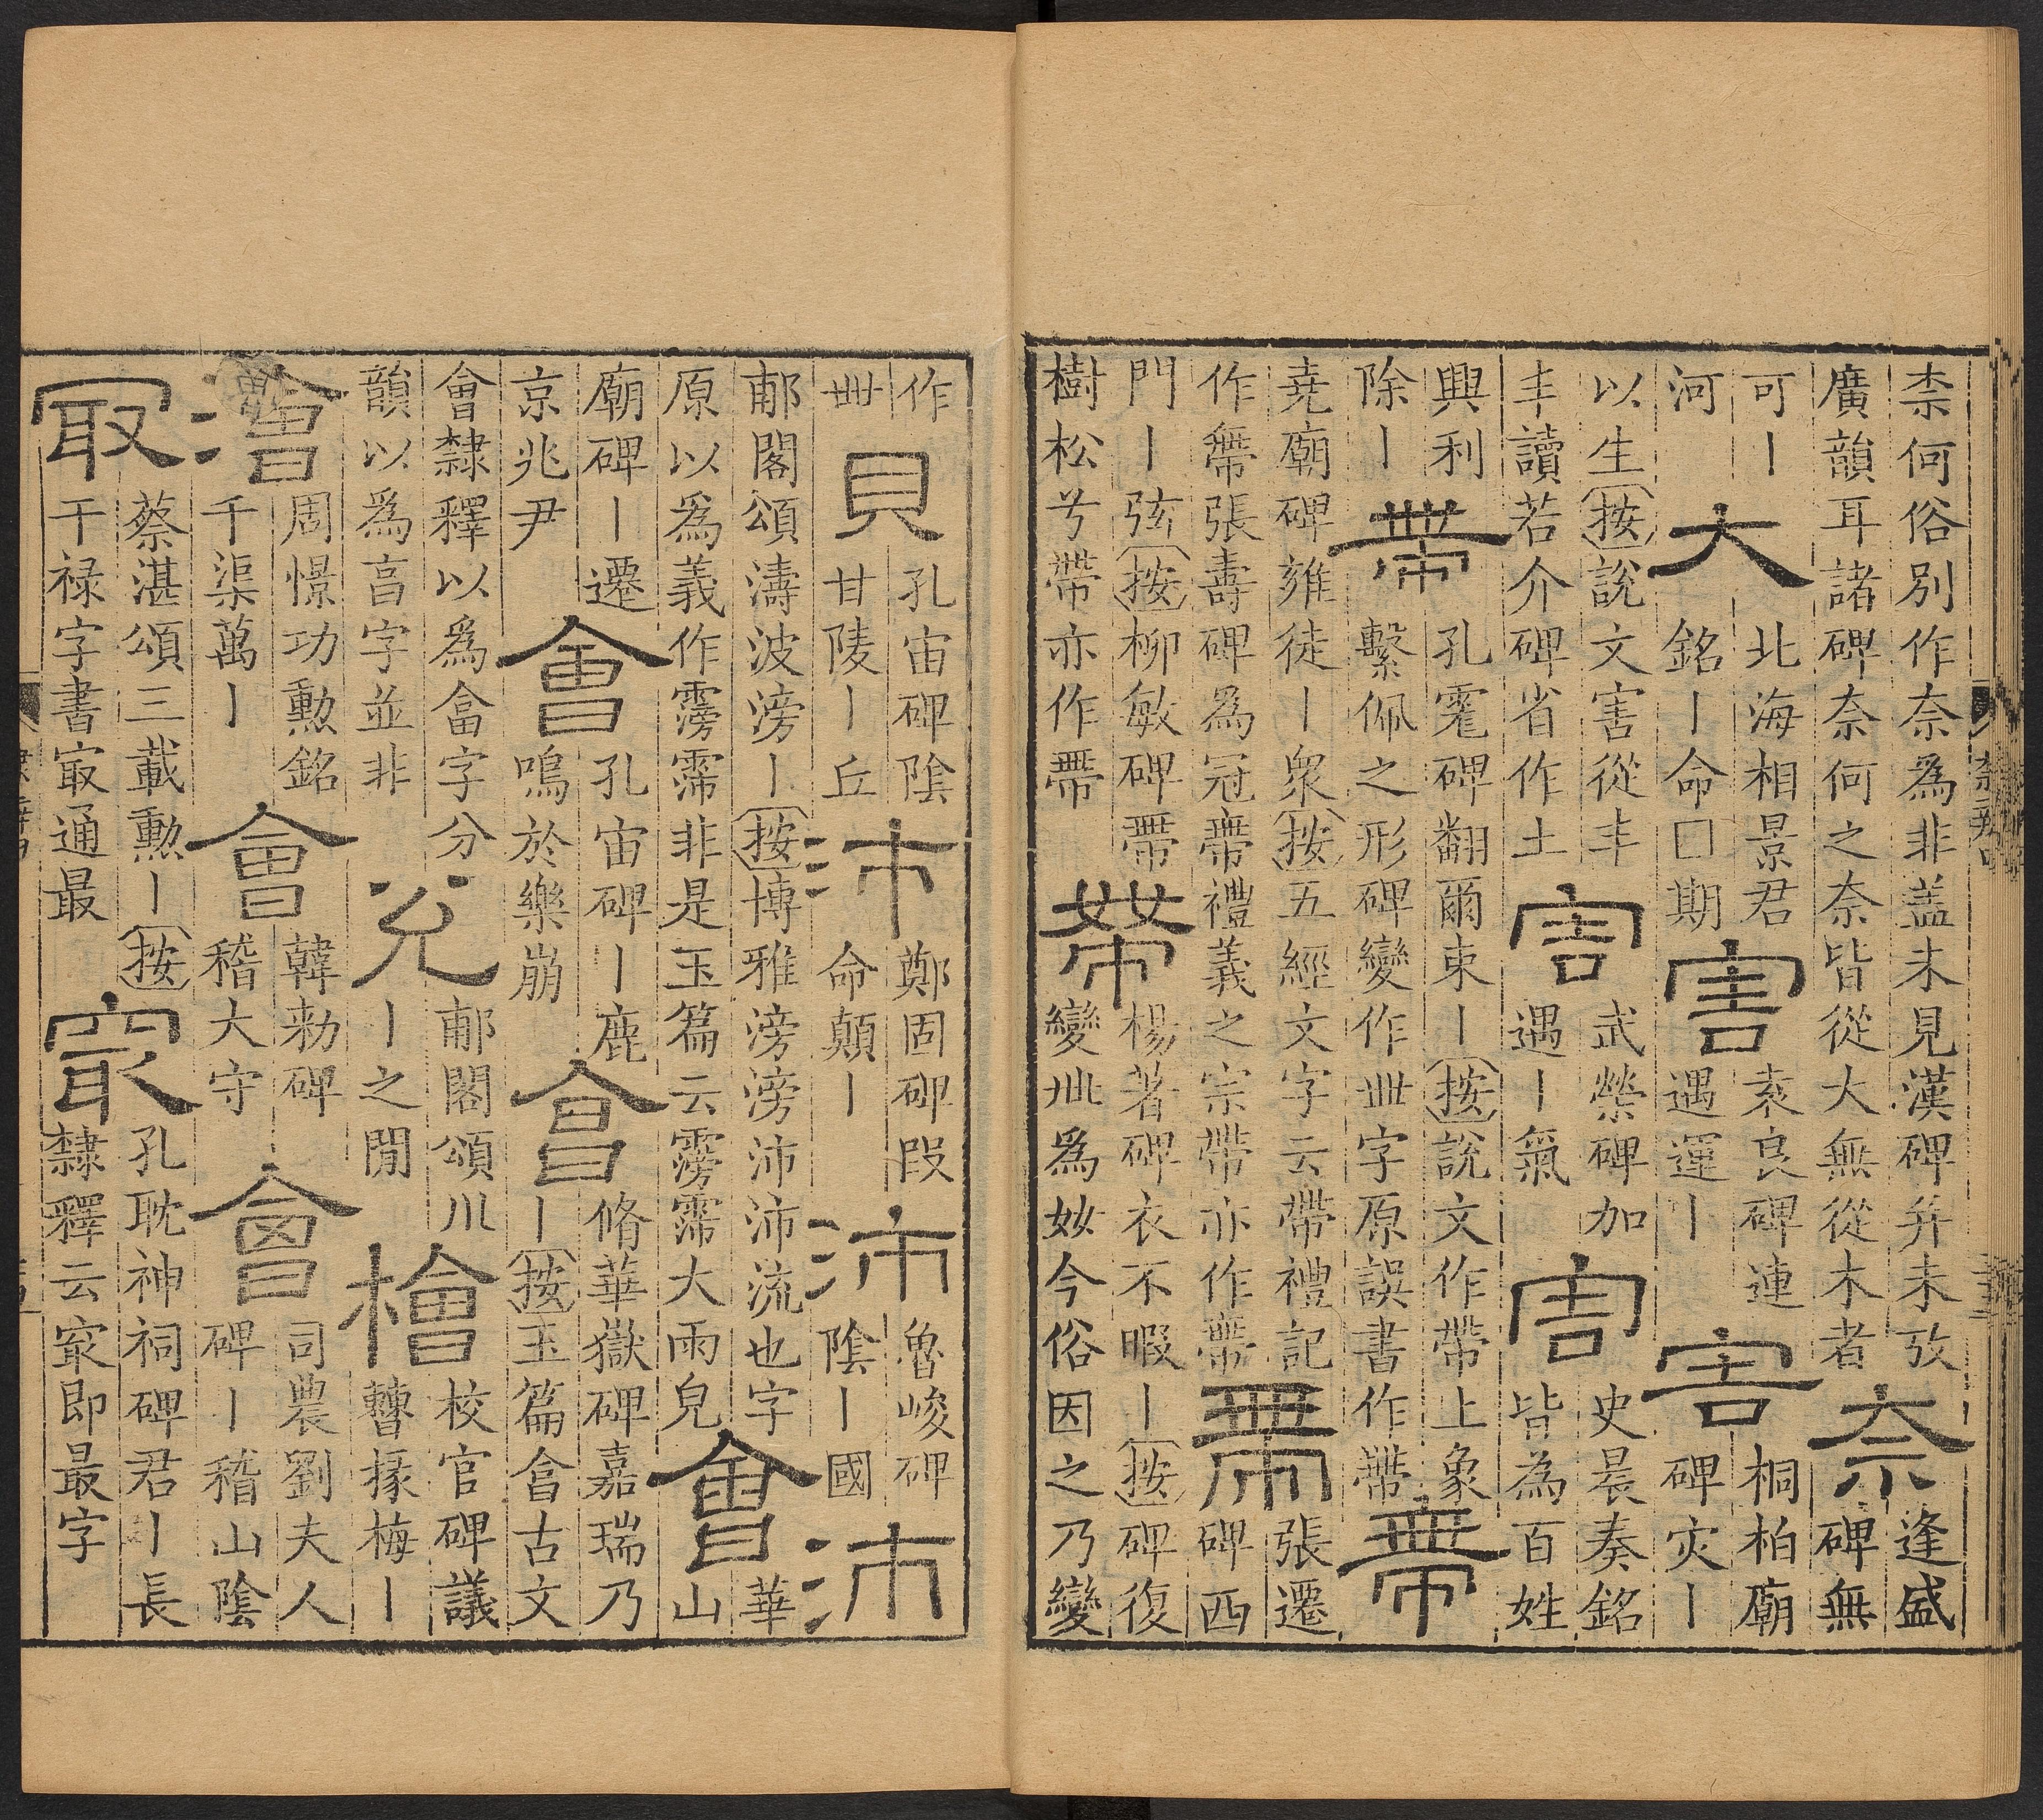 柰何俗別作奈爲非盖未見漢碑并未攷
廣韻耳諸碑奈何之奈皆從大無從木者
奈
逢盛
碑無
可丨
河
大
北海相景君
銘丨命□期
害
袁良碑連
遇運丨
害
桐柏廟
碑灾丨
以生按說文害從丰
丰讀若介碑省作土
害
武榮碑加
遇丨氣
害
史晨奏銘
皆為百姓
興利
除丨
帶
孔宙碑翻爾束丨按說文作帶上象
繫佩之形碑變作丗字原誤書作帶
帶
堯廟碑雍徒丨衆按五經文字云帶禮記
作帶張壽碑為冠帶禮義之宗帶亦作帶
帶
張遷
碑西
門丨弦按柳敏碑帶
樹松兮帶亦作帶
帶
楊著碑衣不暇丨按碑復
變丗爲 今俗因之乃變
作
丗
貝
孔宙碑陰
甘陵丨丘
沛
鄭固碑叚
命顛丨
沛
魯峻碑
陰丨國
沛
郙閣頌濤波滂丨按博雅滂滂沛沛流也字
原以爲義作霶霈非是玉篇云霶霈大雨皃
會
華
山
廟碑丨遷
京兆尹
會
孔宙碑丨鹿
鳴於樂崩
會
脩華嶽碑嘉瑞乃
丨按玉篇㑹古文
會隸釋以爲畣字分
韻以爲亯字並非
兊
郙閣頌川
丨之閒
檜
校官碑議
掾梅丨
澮
周憬功勲銘
千渠萬丨
會
韓勑碑
稽大守
會
司農劉夫人
碑丨稽山陰
冣
蔡湛頌三載勲丨按
干禄字書㝡通最
㝡
孔耽神祠碑君丨長
隸釋云㝡即最字